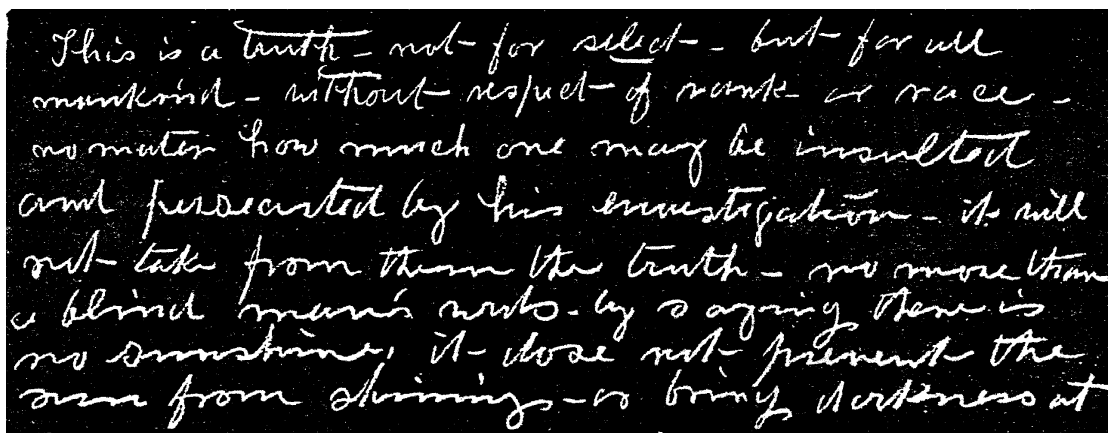 This is a truth - not for select - but for all
mankind - without respect of rank or race -
no matter how much one may be insulted
and persecuted by his envestigation - it will
not take from them the truth - no more than
a blind man's words - by saying there is
no sunshine, it dose not prevent the
sun from shining - or bring darkness at